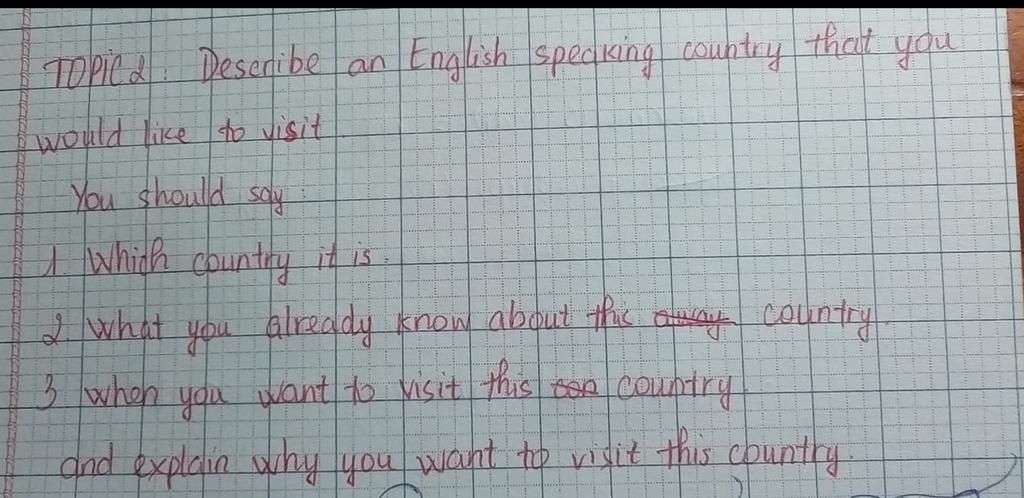 TOPIC 2: Describe an English speaking country that you
would like to visit
You should say:
1 Which country it is.
2 What you already know about this country.
3 when you want to visit this country
and explain why you want to visit this country.